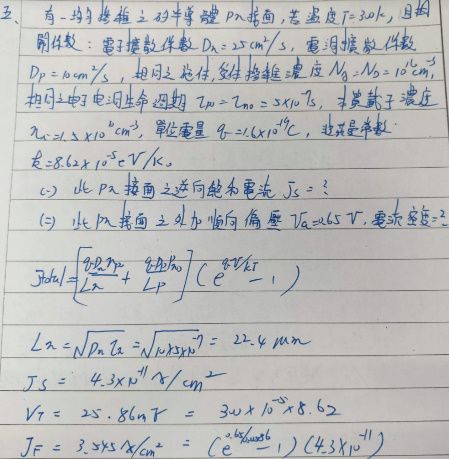 五、有一均勻摻雜之矽半導體 Pn接面,若溫度T=300k,且相
關係數:電子擴散係數 Dn=25cm²/s,電洞擴散係數
Dp=10cm²/s,相同之施体,受体摻雜濃度 Na=Nd=10¹⁶cm⁻³,
相同之电子电洞生命週期 τp0=τn0=5×10⁻⁷s,本質載子濃度
ni=1.5×10¹⁰cm⁻³,單位電量 q=1.6×10⁻¹⁹C,波茲曼常數
k=8.62×10⁻⁵eV/K。
(一) 此 Pn接面之逆向飽和電流 Js=?
(二) 此 Pn接面之外加順向偏壓 Va=0.65 V,電流密度=?
Jtotal=[qDn np/Ln + qDp pn0/Lp](e^qV/kT -1)
Ln=√Dn τn=√10×5×10⁻⁷ = 22.4 μm
Js = 4.3×10⁻¹¹ A/cm²
VT = 25.86mV = 300×10⁻⁵×8.62
JF = 3.545 A/cm² = (e^0.65/0.02586 -1)(4.3×10⁻¹¹)